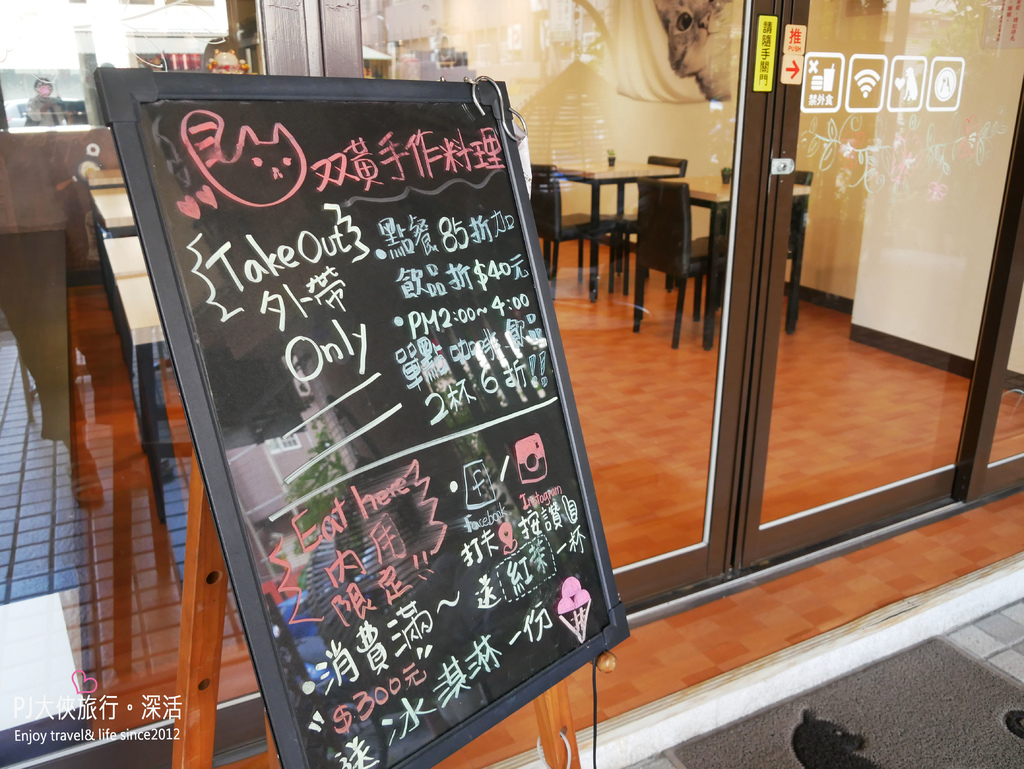 双黃手作料理
Take Out
外帶
Only
•點餐85折加
飲品折$40元
•PM2:00~4:00
單點咖啡飲品
2杯6折!!
Eat here
內用
限定!!
• / 
Facebook Instagram
打卡 按讚
送紅茶一杯
•消費滿~
"$300元"
送冰淇淋一份
請隨手關門
推
PUSH
禁外食
PJ大俠旅行。深活
Enjoy travel& life since2012